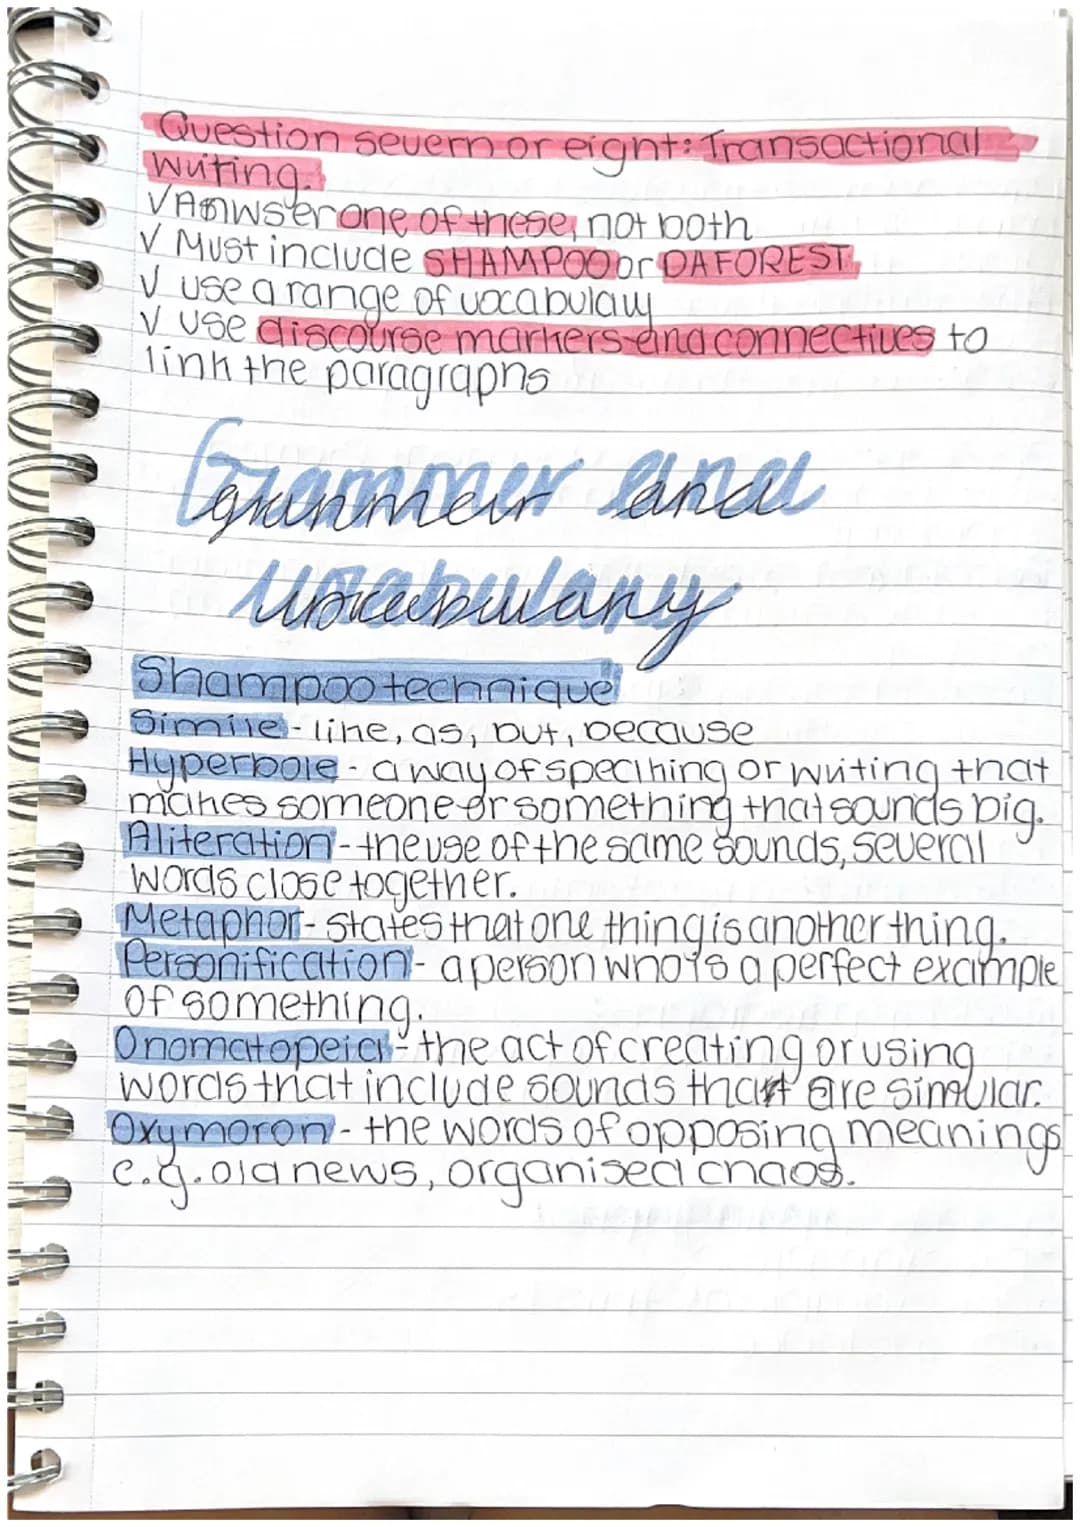 Question severn or eight: Transactional
writing.
√ Answser one of these, not both
√ Must include SHAMPOO or DAFOREST.
√ use a range of vocabulary
√ use discourse markers and connectives to
link the paragraphs
Grammer and
vocabulary
Shampoo technique
Simile - like, as, but, because
Hyperbole - a way of specihing or writing that
makes someone or something that sounds big.
Aliteration - the use of the same sounds, several
words close together.
Metaphor - states that one thing is another thing.
Personification - a person who is a perfect example
of something.
Onomatopeia - the act of creating or using
words that include sounds that are simular.
Oxymoron - the words of opposing meanings
e.g. old news, organised chaos.